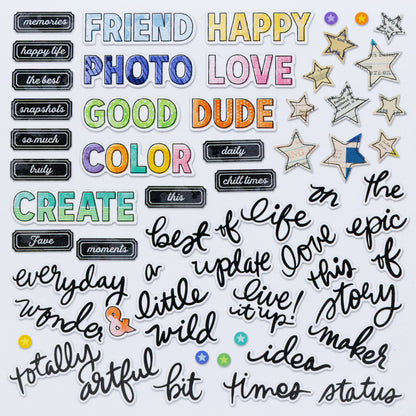 memories
FRIEND
HAPPY
happy life
the best
PHOTO
LOVE
snapshots
GOOD
DUDE
so much
COLOR
daily
truly
chill times
CREATE
this
Fave
moments
best
of
life
on
the
epic
everyday
a
update
love
this
of
wonder
&
little
live!
it up!
story
wild
maker
totally
artful
bit
idea
times
status